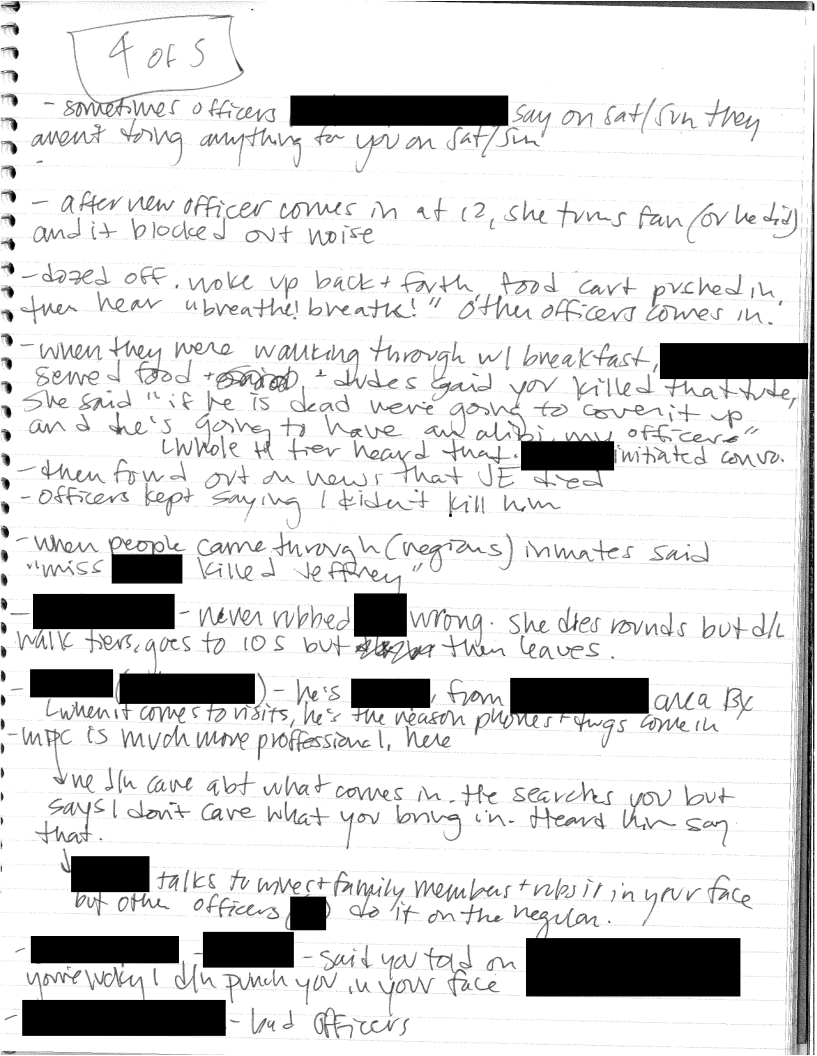 4 OF 5
- sometimes officers say on sat/sun they
aren't doing anything for you on sat/sun
- after new officer comes in at 12, she turns fan (or he did)
and it blocked out noise
- dozed off. woke up back + forth, food cart pushed in,
then hear "breathe! breath!" Other officers comes in.
- when they were walking through w/ breakfast,
served food + dudes said you killed that dude,
she said "if he is dead we're going to cover it up
and he's going to have an alibi, my officers"
whole tier heard that. initiated convo.
- then found out on news that JE died
- officers kept saying I didn't kill him
- when people came through (regions) inmates said
"miss killed Jeffrey"
- - never rubbed wrong. She does rounds but d/n
walk tiers, goes to 10 S but then leaves.
- ( ) - he's , from area Bx
when it comes to visits, he's the reason phones + drugs come in
- MDC is much more proffessional, here
he d/n care abt what comes in. He searches you but
says I don't care what you bring in. Heard him say
that.
talks to wives + family members + rubs it in your face
but other officers ( ) do it on the regular.
- - - said you told on
you're lucky I d/n punch you in your face
- - bad officers